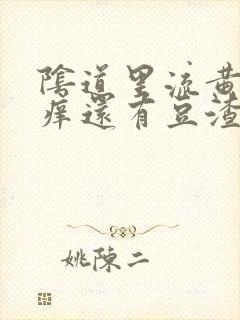 陰道里流黃
癢還有豆渣
姚陳二